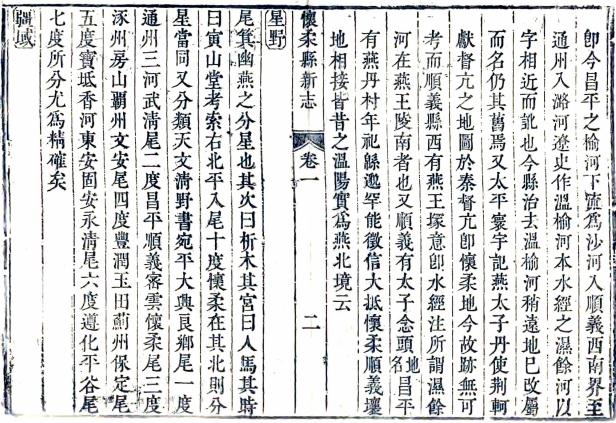 即今昌平之榆河下流為沙河入順義西南界至
通州入潞河遼史作溫榆河本水經之濕餘河以
字相近而訛也今縣治去溫榆河稍遠地已改屬
而名仍其舊焉又太平寰宇記燕太子丹使荆軻
獻督亢之地圖於秦督亢即懷柔地今故跡無可
考而順義縣西有燕王塚意即水經注所謂濕餘
河在燕王陵南者也又順義有太子念頭地名昌平
有燕丹村年祀緜邈罕能徵信大抵懷柔順義壤
地相接皆昔之溫陽實為燕北境云
懷柔縣新志 卷一 二
星野
尾箕幽燕之分星也其次曰析木其宮曰人馬其時
曰寅山堂考索右北平入尾十度懷柔在其北則分
星當同又分類天文清野書宛平大興良鄉尾一度
通州三河武清尾二度昌平順義密雲懷柔尾三度
涿州房山霸州文安尾四度豐潤玉田薊州保定尾
五度寶坻香河東安固安永清尾六度遵化平谷尾
七度所分尤為精確矣
疆域